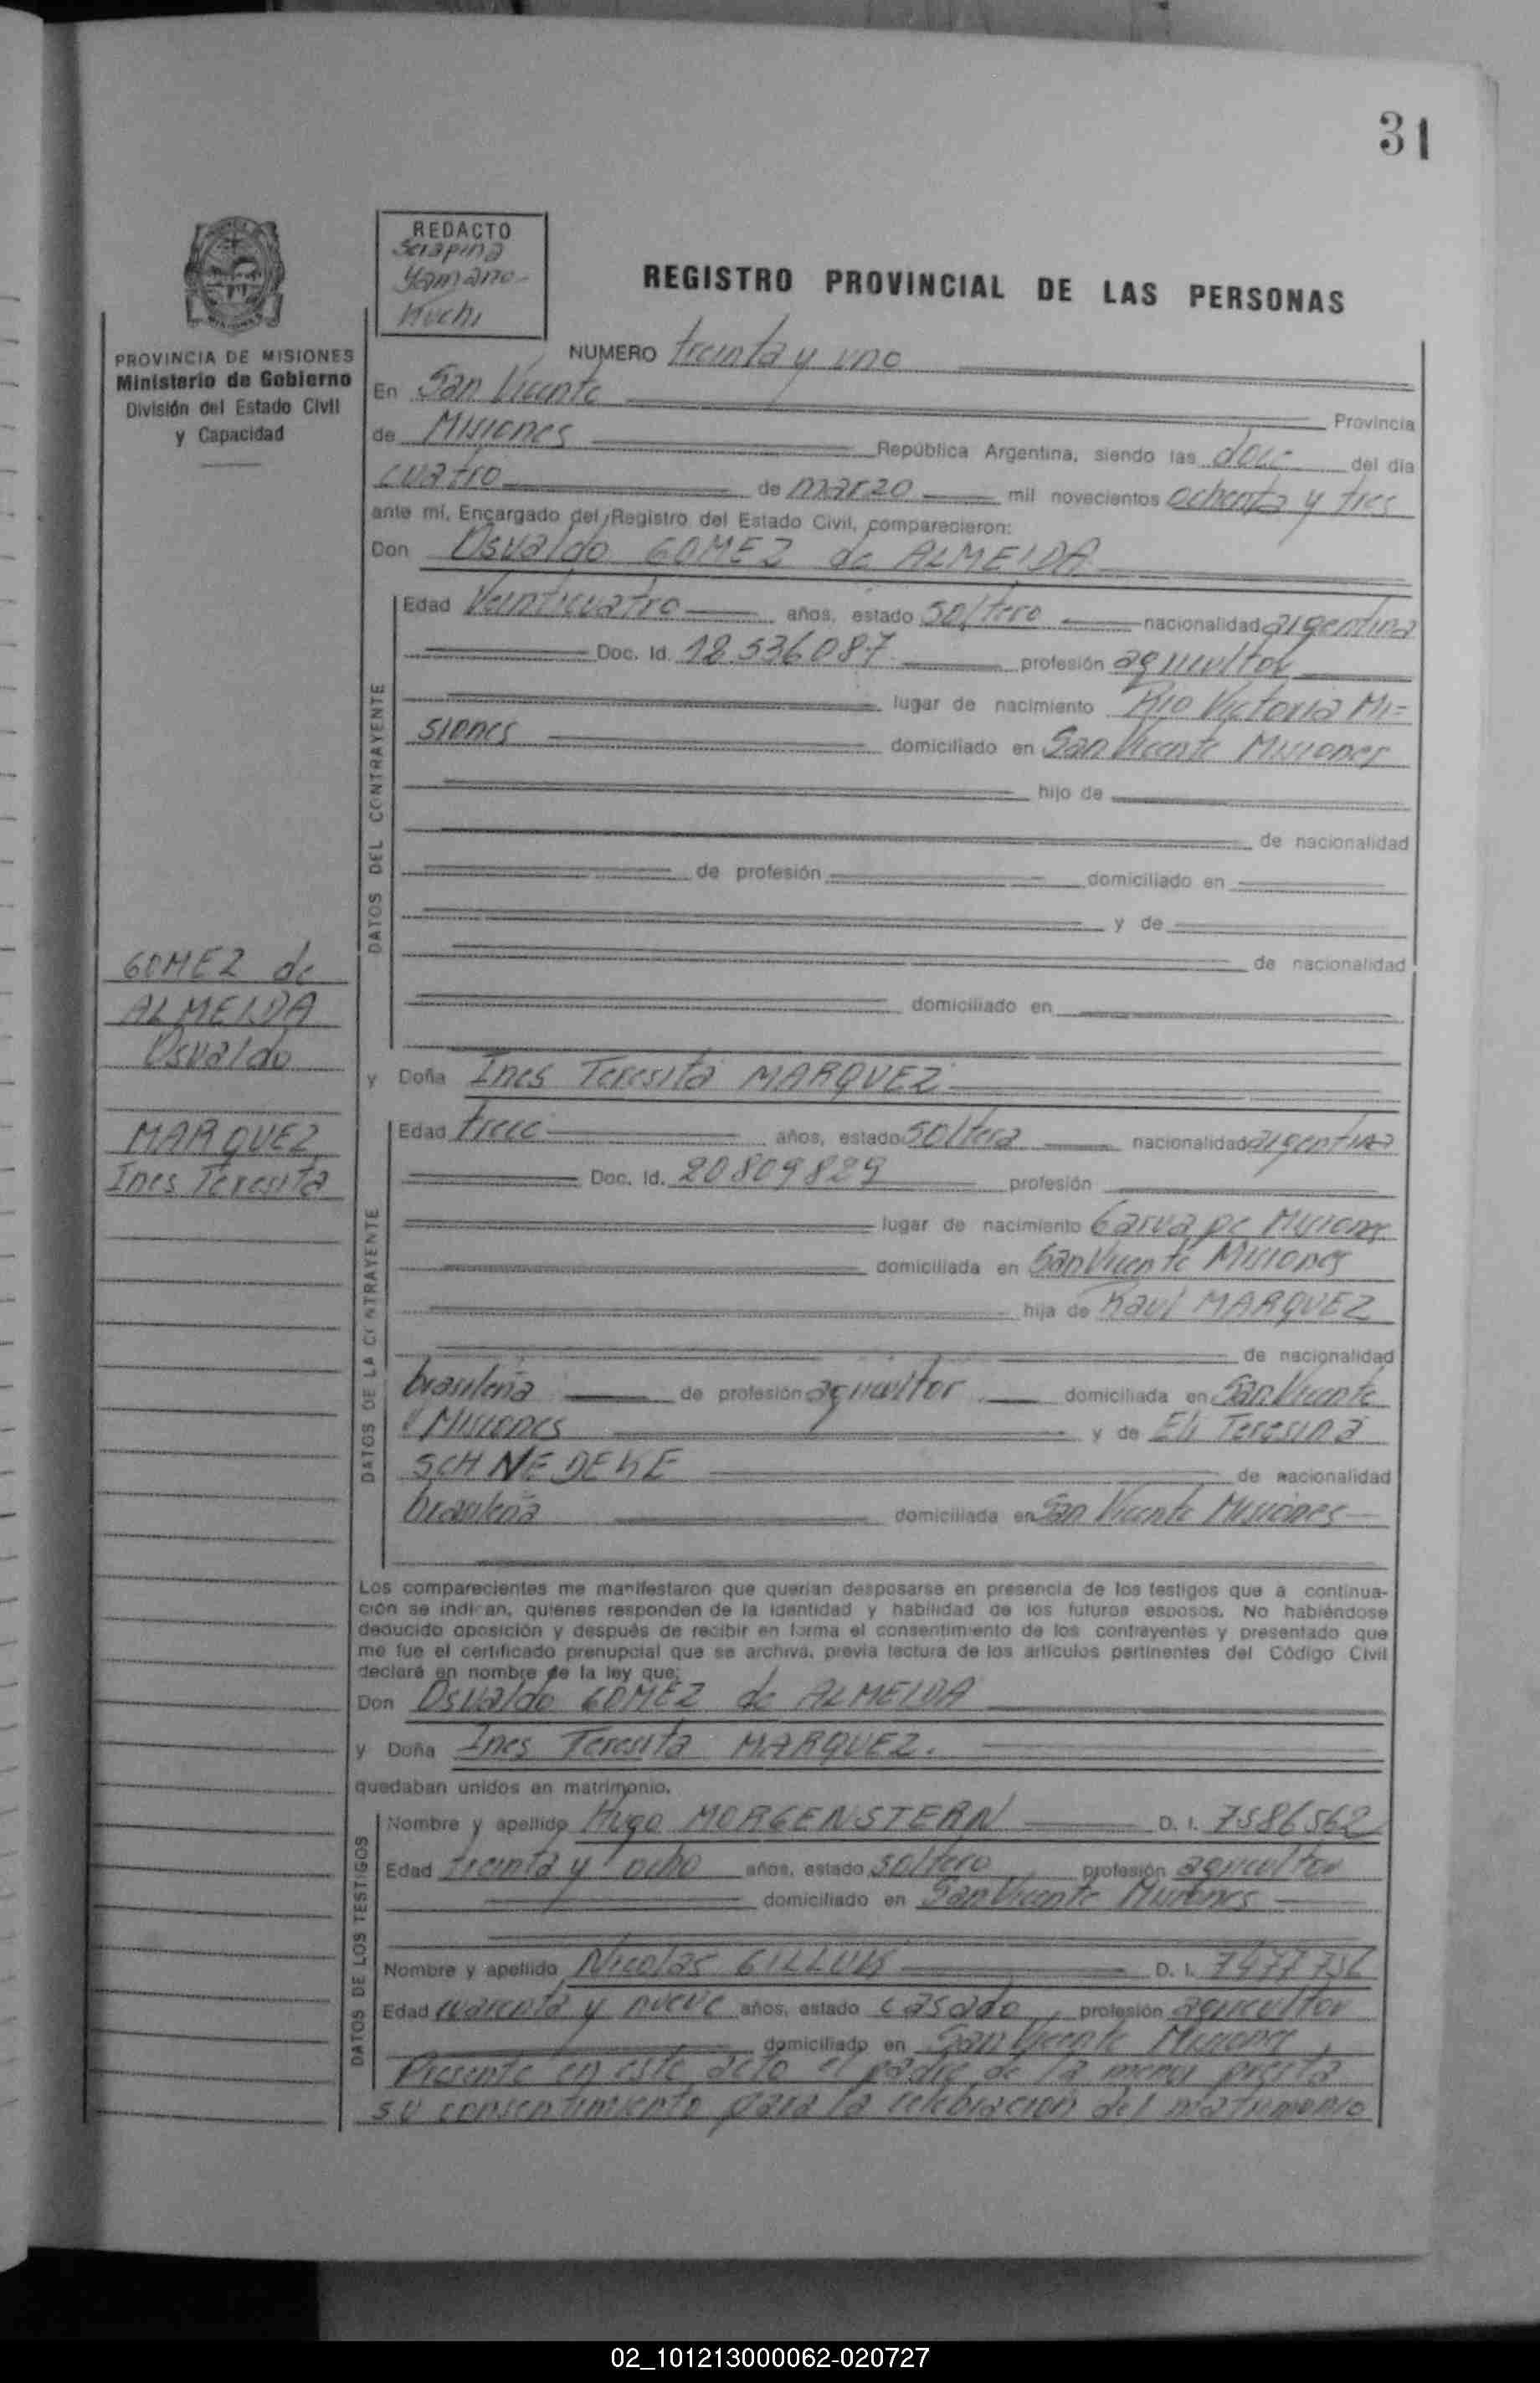 31
REDACTO
Serapina
Yamano-
Huchi
REGISTRO PROVINCIAL DE LAS PERSONAS
PROVINCIA DE MISIONES
Ministerio de Gobierno
División del Estado Civil
y Capacidad
NUMERO treinta y uno
En San Vicente Provincia
de Misiones República Argentina, siendo las doce del día
cuatro de marzo mil novecientos ochenta y tres
ante mí, Encargado del Registro del Estado Civil, comparecieron:
Don Osvaldo GOMEZ de ALMEIDA
DATOS DEL CONTRAYENTE
Edad Veinticuatro años, estado soltero nacionalidad argentina
Doc. Id. 18.536087 profesión agricultor
lugar de nacimiento Rio Victoria Mi=
siones domiciliado en San Vicente Misiones
hijo de
de nacionalidad
de profesión domiciliado en
y de
de nacionalidad
domiciliado en
GOMEZ de
ALMEIDA
Osvaldo
MARQUEZ
Ines Teresita
y Doña Ines Teresita MARQUEZ
DATOS DE LA CONTRAYENTE
Edad trece años, estado soltera nacionalidad argentina
Doc. Id. 20809829 profesión
lugar de nacimiento Garuapé Misiones
domiciliada en San Vicente Misiones
hija de Raul MARQUEZ
de nacionalidad
brasileña de profesión agricultor domiciliada en San Vicente
Misiones y de Eli Teresina
SCHNEDEKE de nacionalidad
brasileña domiciliada en San Vicente Misiones
Los comparecientes me manifestaron que querían desposarse en presencia de los testigos que a continua-
ción se indican, quienes responden de la identidad y habilidad de los futuros esposos. No habiéndose
deducido oposición y después de recibir en forma el consentimiento de los contrayentes y presentado que
me fue el certificado prenupcial que se archiva, previa lectura de los artículos pertinentes del Código Civil
declaré en nombre de la ley que:
Don Osvaldo GOMEZ de ALMEIDA
y Doña Ines Teresita MARQUEZ.
quedaban unidos en matrimonio.
DATOS DE LOS TESTIGOS
Nombre y apellido Hugo MORGENSTERN D. I. 7586562
Edad treinta y ocho años, estado soltero profesión agricultor
domiciliado en San Vicente Misiones
Nombre y apellido Nicolas D. I.
Edad cuarenta y nueve años, estado casado, profesión agricultor
domiciliado en San Vicente Misiones,
Presente en este acto el padre de la menor presta
su consentimiento para la celebración del matrimonio
02_101213000062-020727